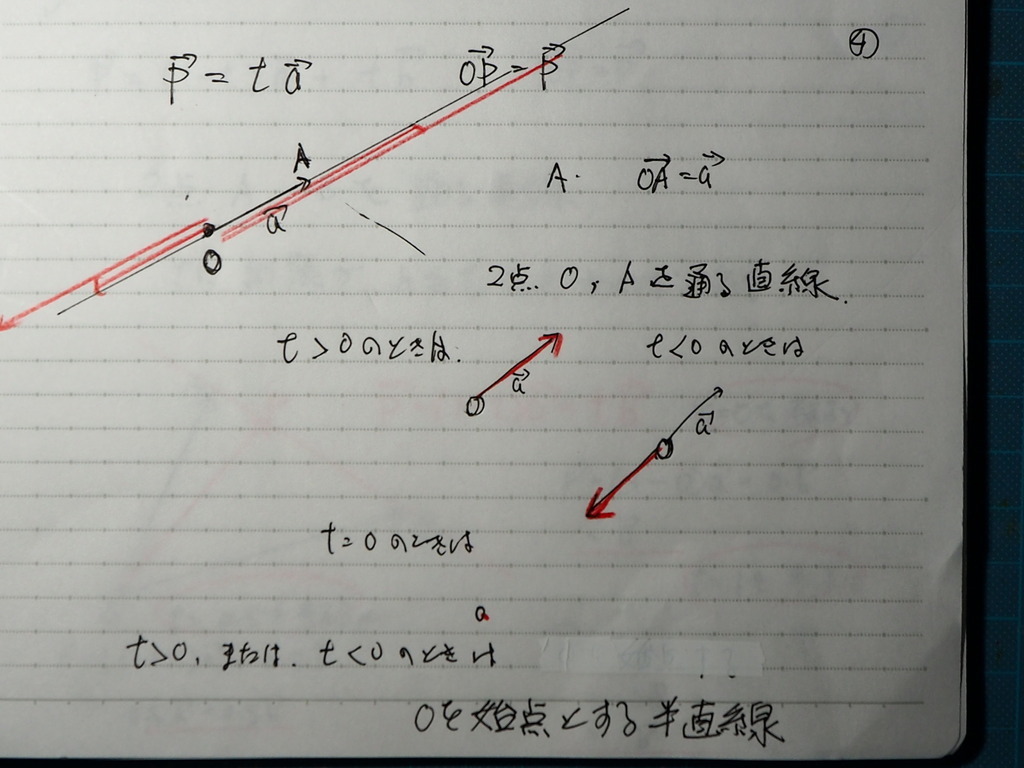 ④
p⃗ = t a⃗
OP⃗ = p⃗
A
a⃗
O
A. OA⃗ = a⃗
2点 O, A を通る直線.
t > 0 のときは.
t < 0 のときは
a⃗
O
a⃗
O
t = 0 のときは
t > 0, または. t < 0 のときは
Oを始点とする半直線